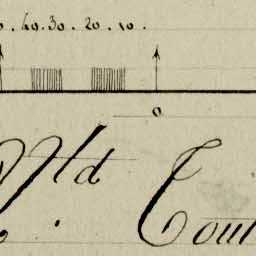 40.30. 20. 10.
0
Old Cou